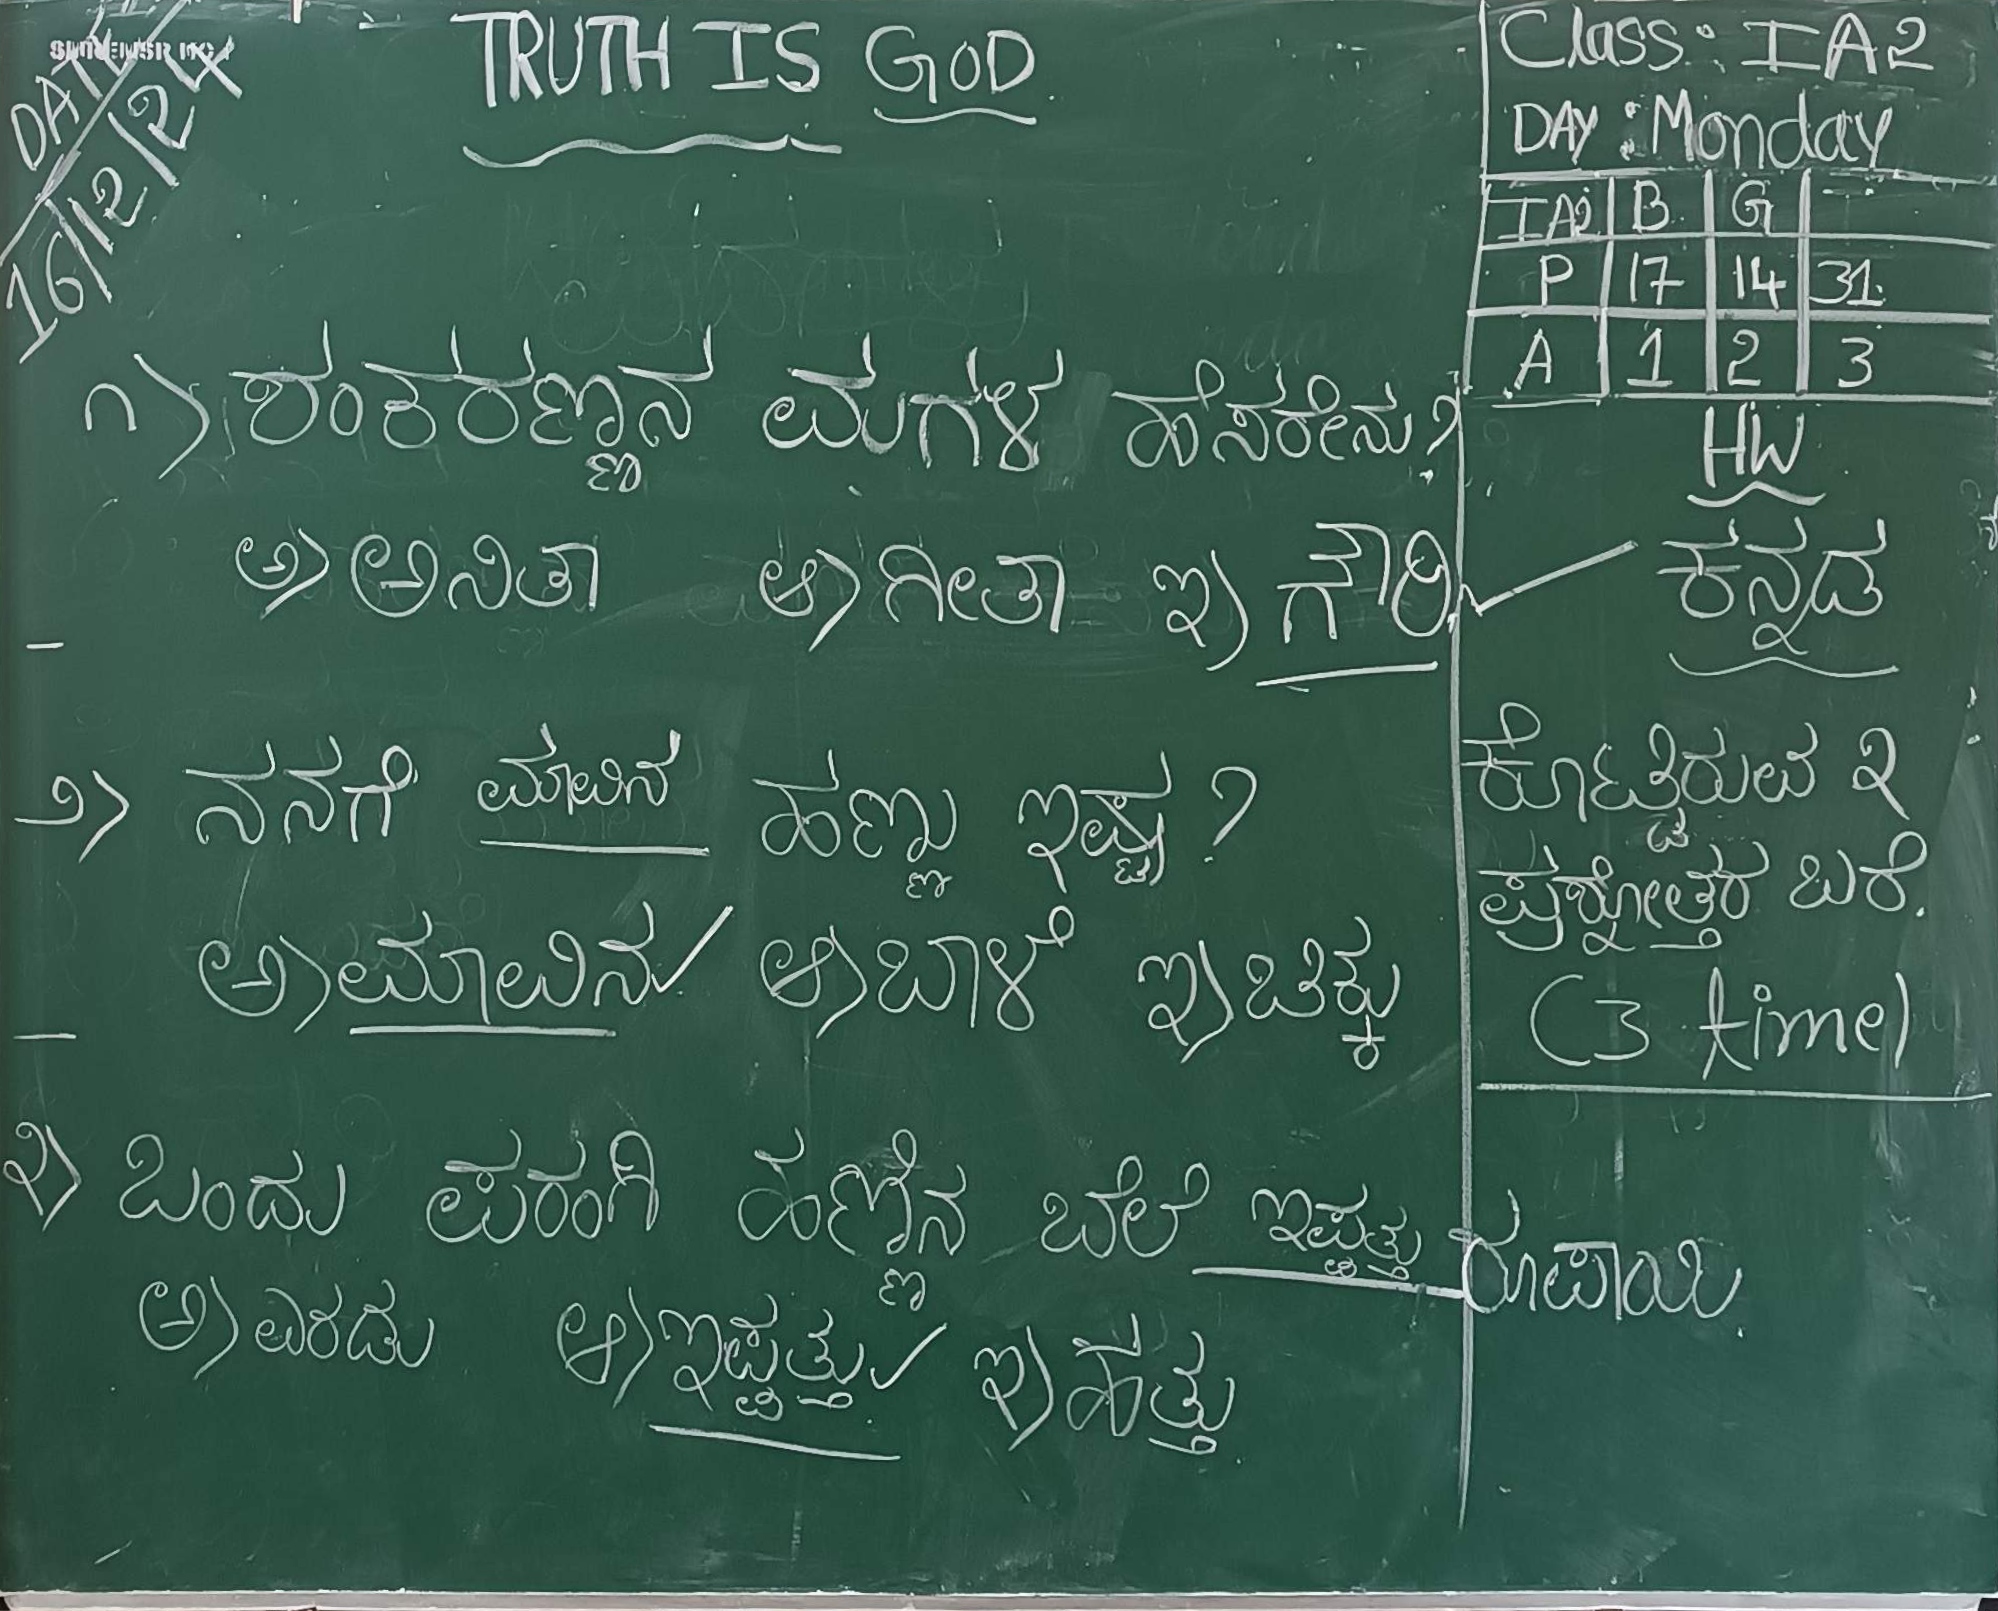 TRUTH IS GOD
DATE
16/12/24
Class: IA2
DAY: Monday
IA2 B G
P 17 14 31
A 1 2 3
HW
ಕನ್ನಡ
ಕೊಟ್ಟಿರುವ ೩
ಪ್ರಶ್ನೋತ್ತರ ಬರೆ.
(3 time)
೧) ಶಂಕರಣ್ಣನ ಮಗಳ ಹೆಸರೇನು?
ಅ) ಅನಿತಾ ಆ) ಗೀತಾ ಇ) ಗೌರಿ ✓
೨) ನನಗೆ ಮಾವಿನ ಹಣ್ಣು ಇಷ್ಟ?
ಅ) ಮಾವಿನ ✓ ಆ) ಬಾಳೆ ಇ) ಚಿಕ್ಕು
೩) ಒಂದು ಪರಂಗಿ ಹಣ್ಣಿನ ಬೆಲೆ ಇಪ್ಪತ್ತು ರೂಪಾಯಿ.
ಅ) ಎರಡು ಆ) ಇಪ್ಪತ್ತು ✓ ಇ) ಹತ್ತು